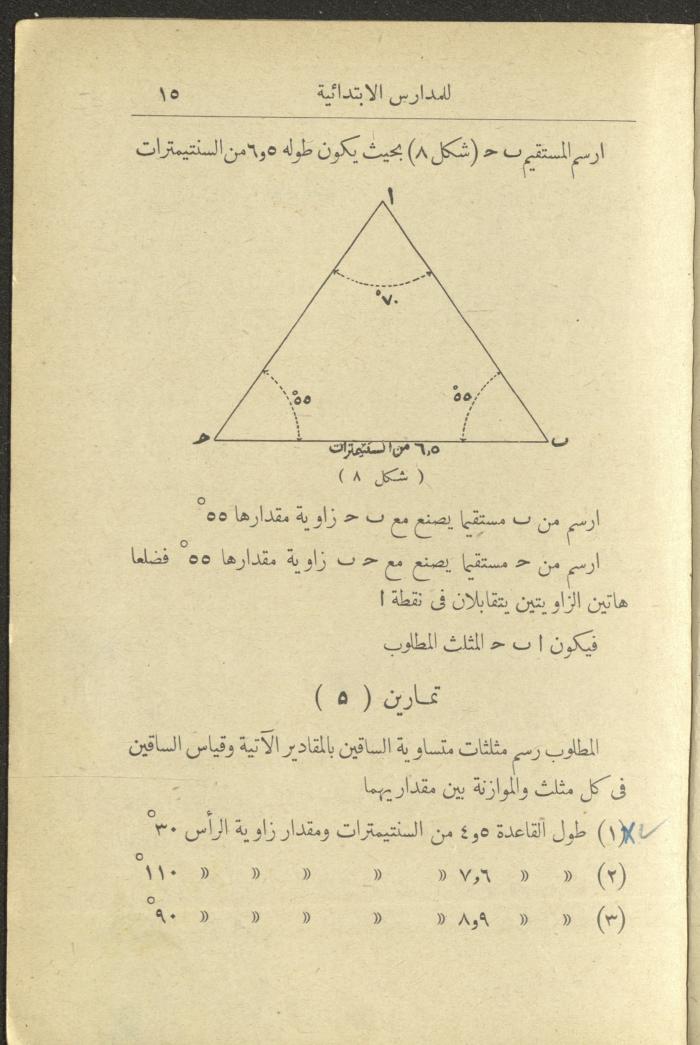 للمدارس الابتدائية ١٥
ارسم المستقيم ٮ ح (شكل ٨) بحيث يكون طوله ٥و٦ من السنتيمترات
ا
٧٠°
٥٥°
٥٥°
ح
ٮ
٦,٥ من السنتيمترات
( شكل ٨ )
ارسم من ٮ مستقيما يصنع مع ٮ ح زاوية مقدارها ٥٥°
ارسم من ح مستقيما يصنع مع ح ٮ زاوية مقدارها ٥٥° فضلعا
هاتين الزاويتين يتقابلان فى نقطة ا
فيكون ا ٮ ح المثلث المطلوب
تمارين ( ٥ )
المطلوب رسم مثلثات متساوية الساقين بالمقادير الآتية وقياس الساقين
فى كل مثلث والموازنة بين مقداريهما
(١) طول القاعدة ٥و٤ من السنتيمترات ومقدار زاوية الرأس ٣٠°
(٢) » » ٦و٧ » » » » » ١١٠°
(٣) » » ٩و٨ » » » » » ٩٠°